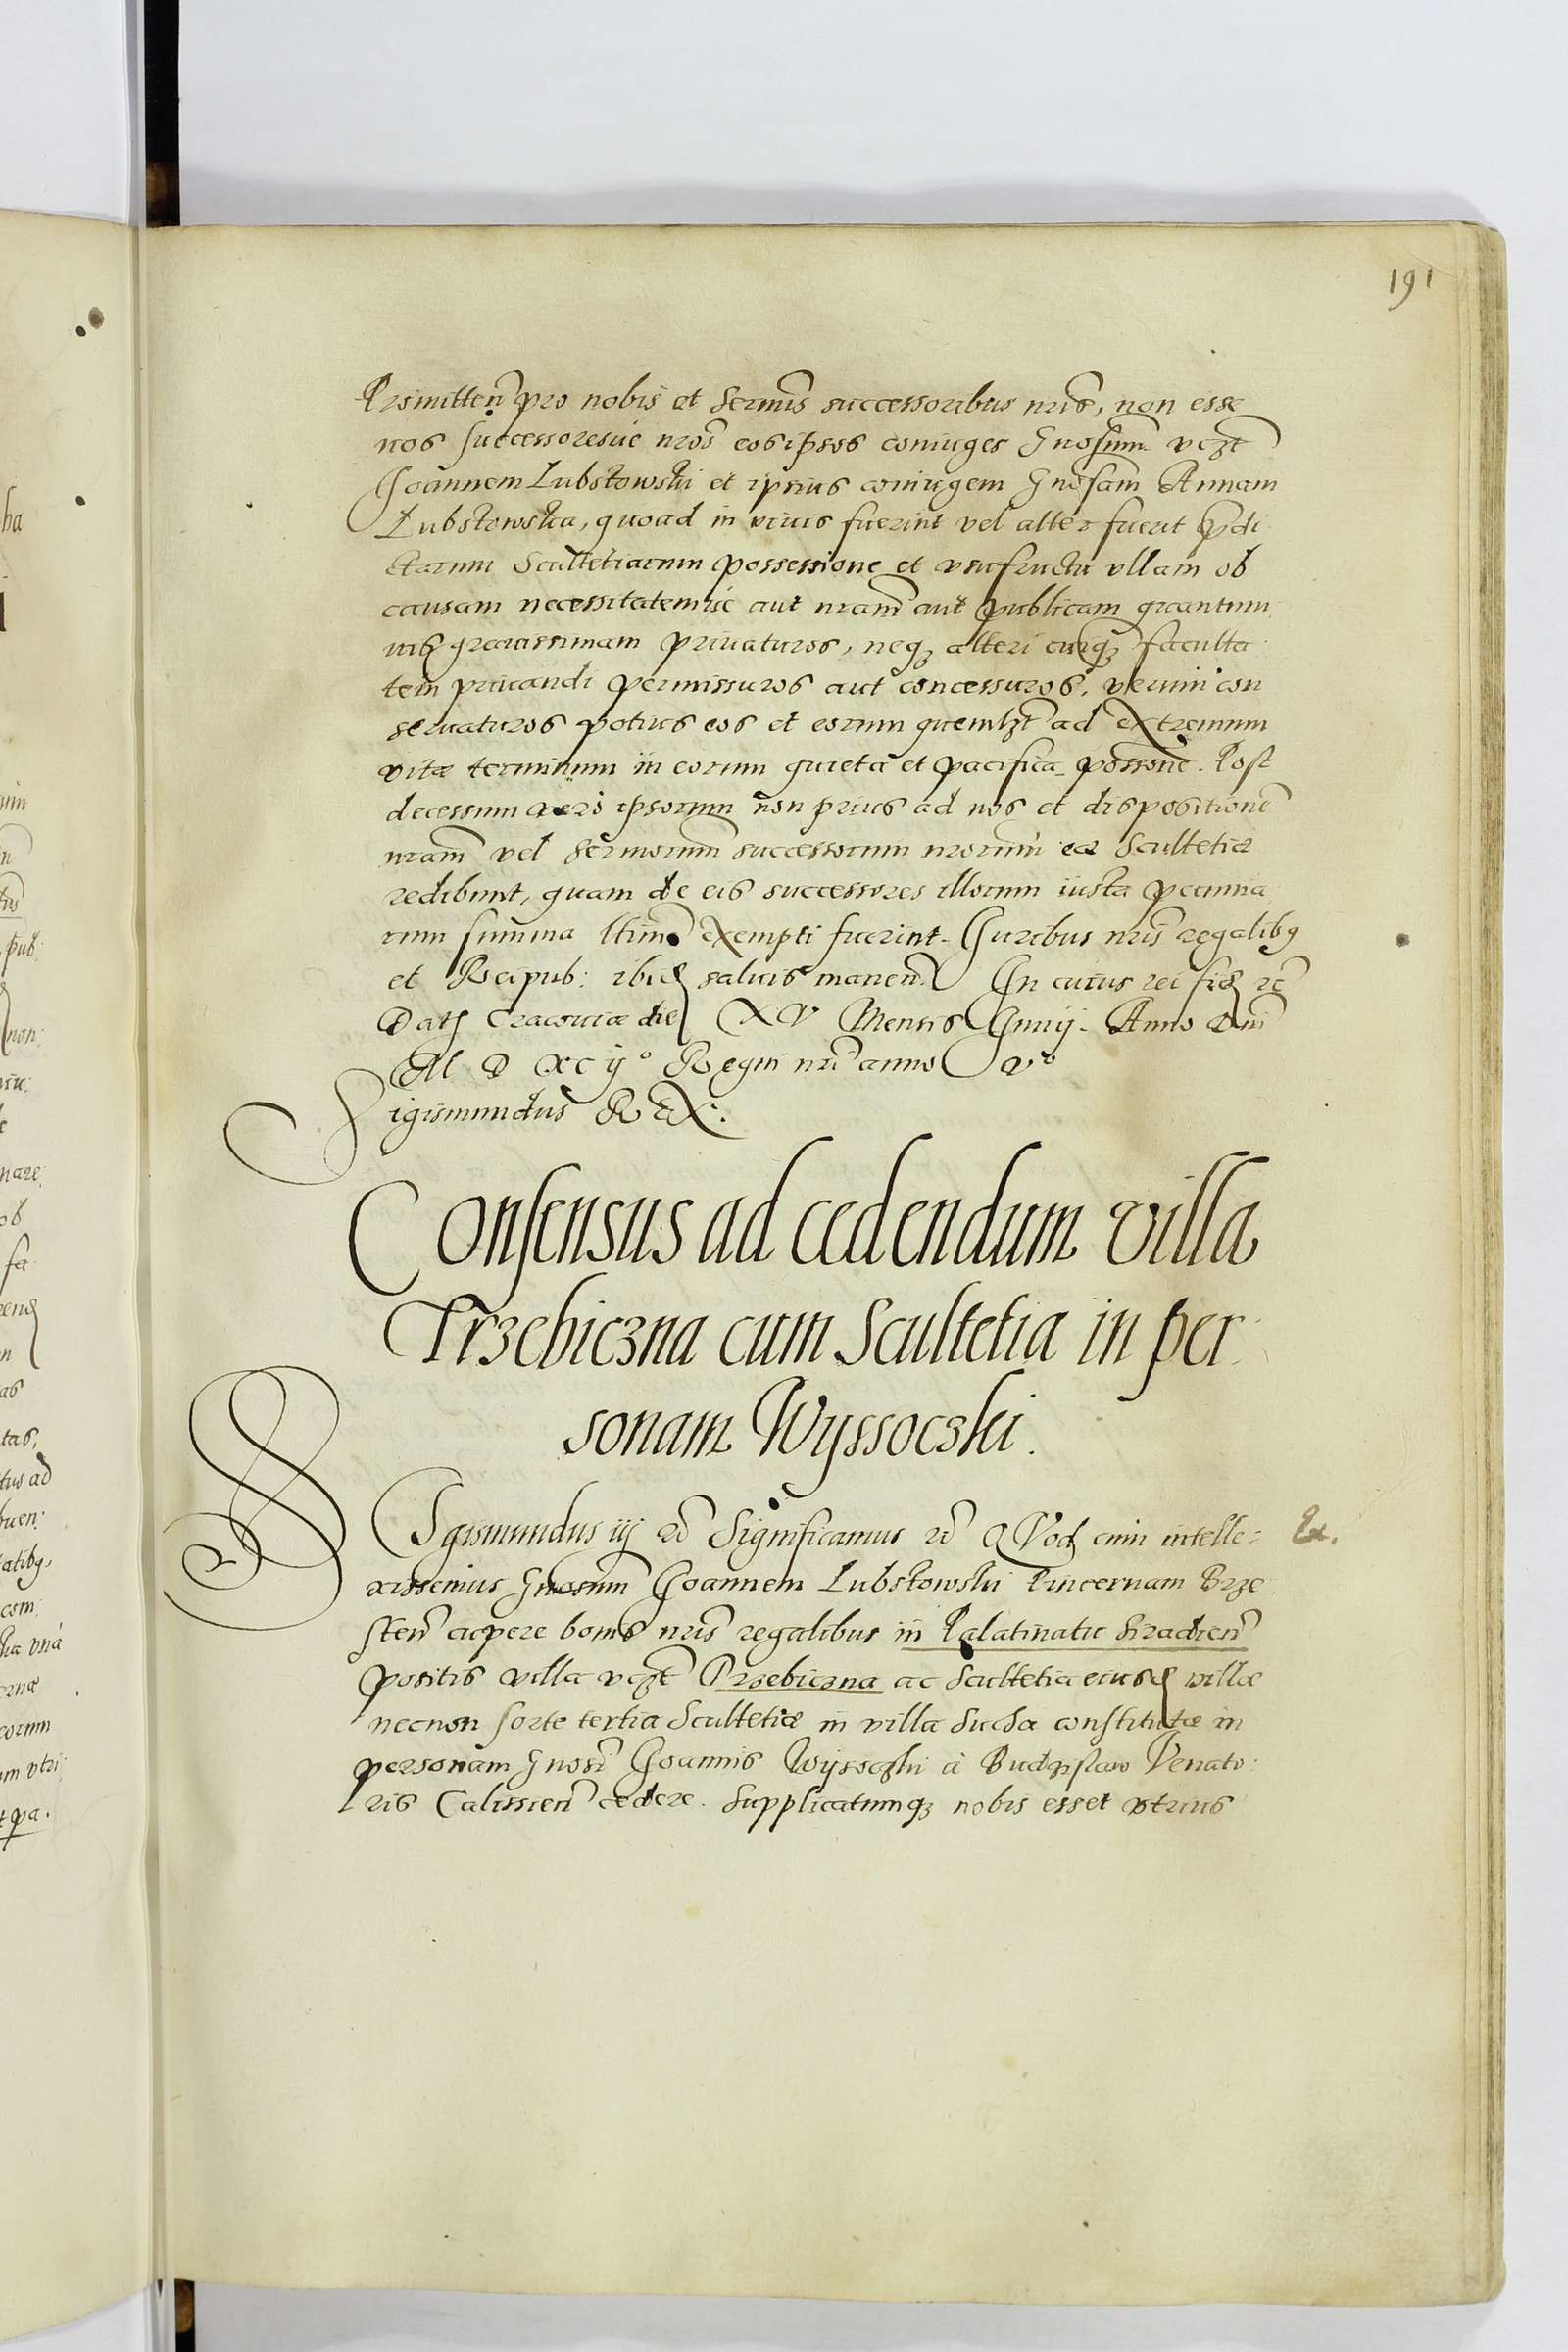 191
Promitten pro nobis et Sermis successoribus nris, non esse
nos successoresue nros eosipsos coniuges Gnosum vczt
Joannem Lubstowski et ipsius coniugem Gnosam Annam
Lubstowska, quoad in viuis fuerint vel alter fuerit pdi
ctarum Scultetiarum possessione et vsufructu vllam ob
causam necessitatemue aut nram aut publicam quantum
uis grauissimam priuaturos, neq alteri cuiq faculta
tem priuandi permissuros aut concessuros, verum con
seruaturos potius eos et eorum quemlzt ad extremum
vitæ terminum in eorum quieta et pacifica possone. Post
decessum vero ipsorum non prius ad nos et dispositione
nram vel Sermorum successorum nrorum eæ Scultetiæ
redibunt, quam de eis successores illorum iusta pecunia
rum summa ltime exempti fuerint. Juribus nris regalibq
et Reipub: ibid saluis manen. In cuius rei fid etc
Dat Cracouiæ die XV Mensis Junij. Anno Dni
M D XC ijo Regni nri anno Vo
Sigismundus REX.
Consensus ad cedendum villa
Trzebiczna cum Scultetia in per
sonam Wyssoczki.
SIgismundus iij etc Significamus etc QVod cum intelle= Ex.
xissemus Gnosum Joannem Lubstowski Pincernam Brze
sten cupere bonis nris regalibus in Palatinatu Siradien
positis villa vczt Trzebiczna ac Scultetia eiusd villæ
necnon sorte tertia Scultetiæ in villa Sucha constitutæ in
personam Gnosi Joannis Wysoczki à Budzislaw Venato
ris Calissien cedere. Supplicatumq nobis esset vtrius